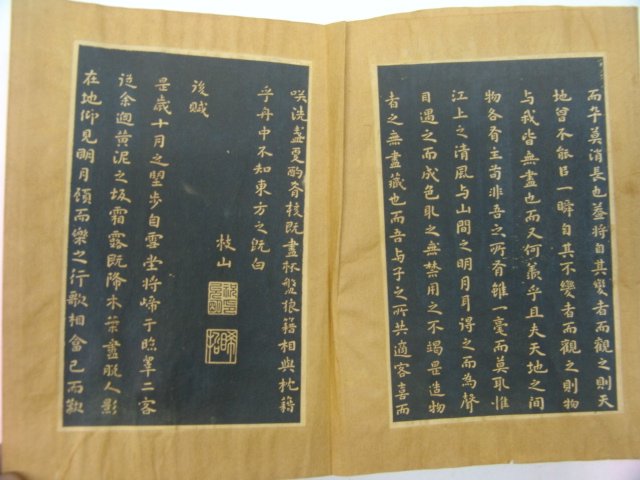 而卒莫消長也蓋將自其變者而觀之則天
地曾不能以一瞬自其不變者而觀之則物
與我皆無盡也而又何羨乎且夫天地之間
物各有主苟非吾之所有雖一毫而莫取惟
江上之清風與山間之明月耳得之而為聲
目遇之而成色取之無禁用之不竭是造物
者之無盡藏也而吾與子之所共適客喜而
咲洗盞更酌肴核既盡杯盤狼籍相與枕籍
乎舟中不知東方之既白
枝山
後賦
是歲十月之望步自雪堂將歸于臨皋二客
從余過黃泥之坂霜露既降木葉盡脫人影
在地仰見明月顧而樂之行歌相答已而歎